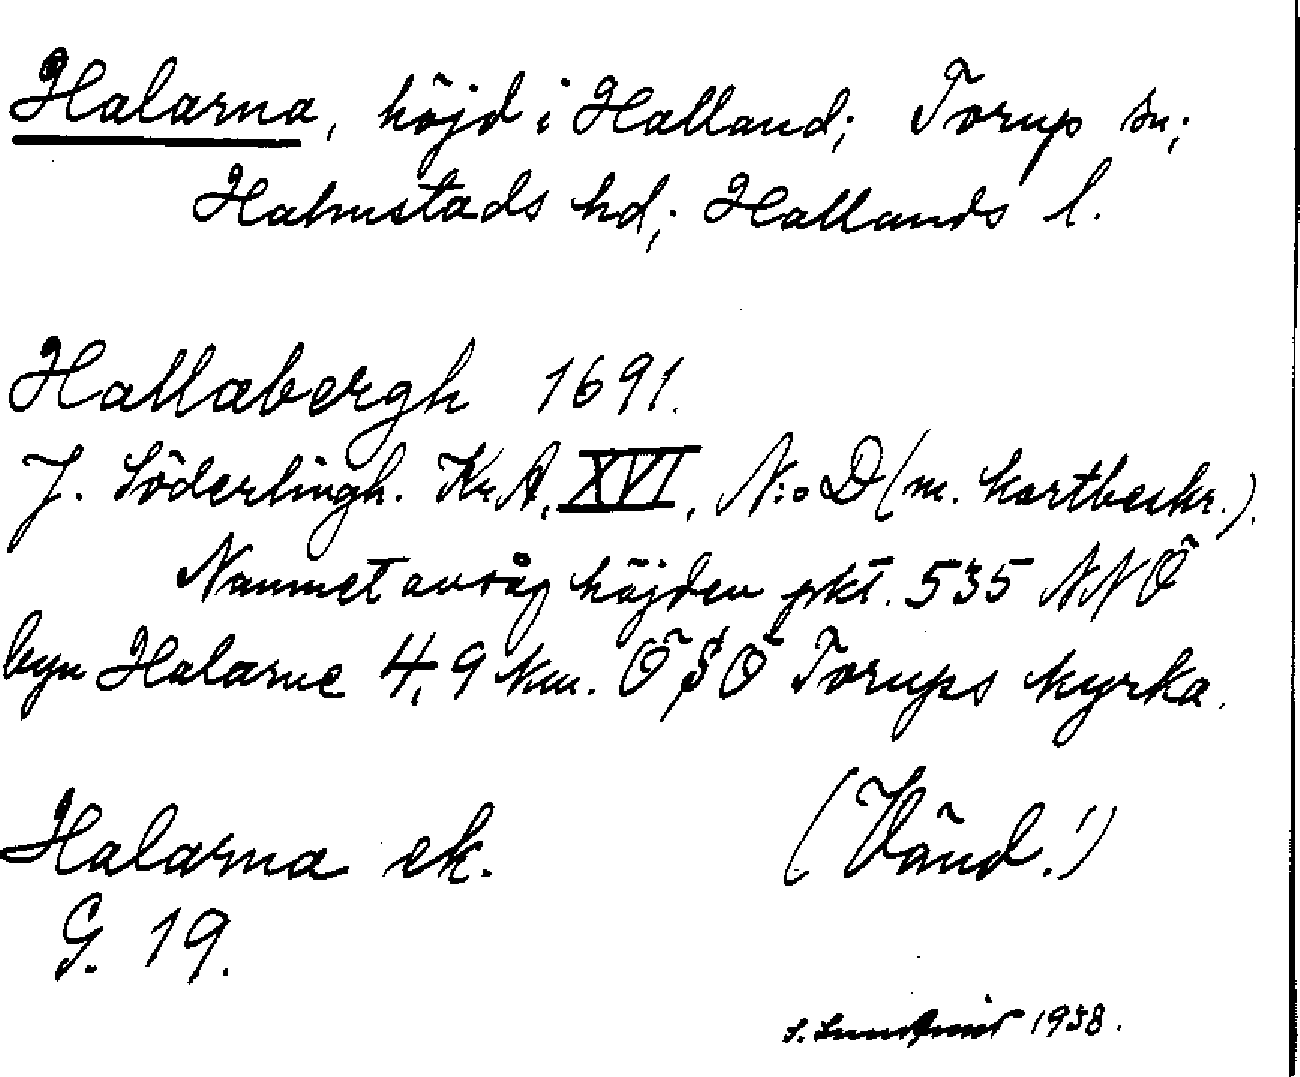 Halarna, höjd i Halland; Torup sn;
Halmstads hd; Hallands l.
Hallabergh 1691.
J. Söderlingh. Kr.A. XVI, N:o D (m. kartbeskr.).
Namnet avsåg höjden pkt. 535 NNÖ
byn Halarne 4,9 km. ÖSÖ Torups kyrka.
Halarna ek.
(Vänd!)
G. 19.
S. Lundqvist 1938.